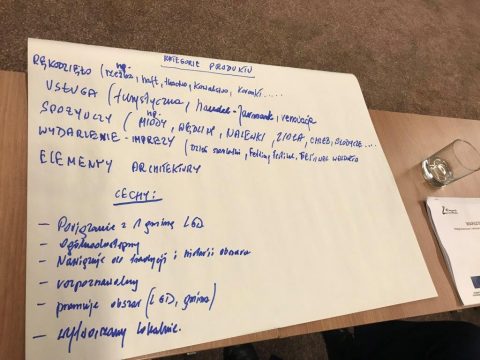 KATEGORIE PRODUKTU
RĘKODZIEŁO (np. rzeźba, haft, tkactwo, kowalstwo, koronki.....
USŁUGA (turystyczna, handel - Jarmark, renowacja
SPOŻYWCZY (np. MIODY, WĘDLIN, NALEWKI, ZIOŁA, CHLEB, SŁODYCZE...
WYDARZENIE - IMPREZY (Dzień
ELEMENTY ARCHITEKTURY
CECHY:
- Powiązanie z 1 gminą LGD
- Ogólnodostępny
- Nawiązuje do tradycji i historii obszaru
- rozpoznawalny
- promuje obszar (LGD, gmina)
- wytwarzany lokalnie.